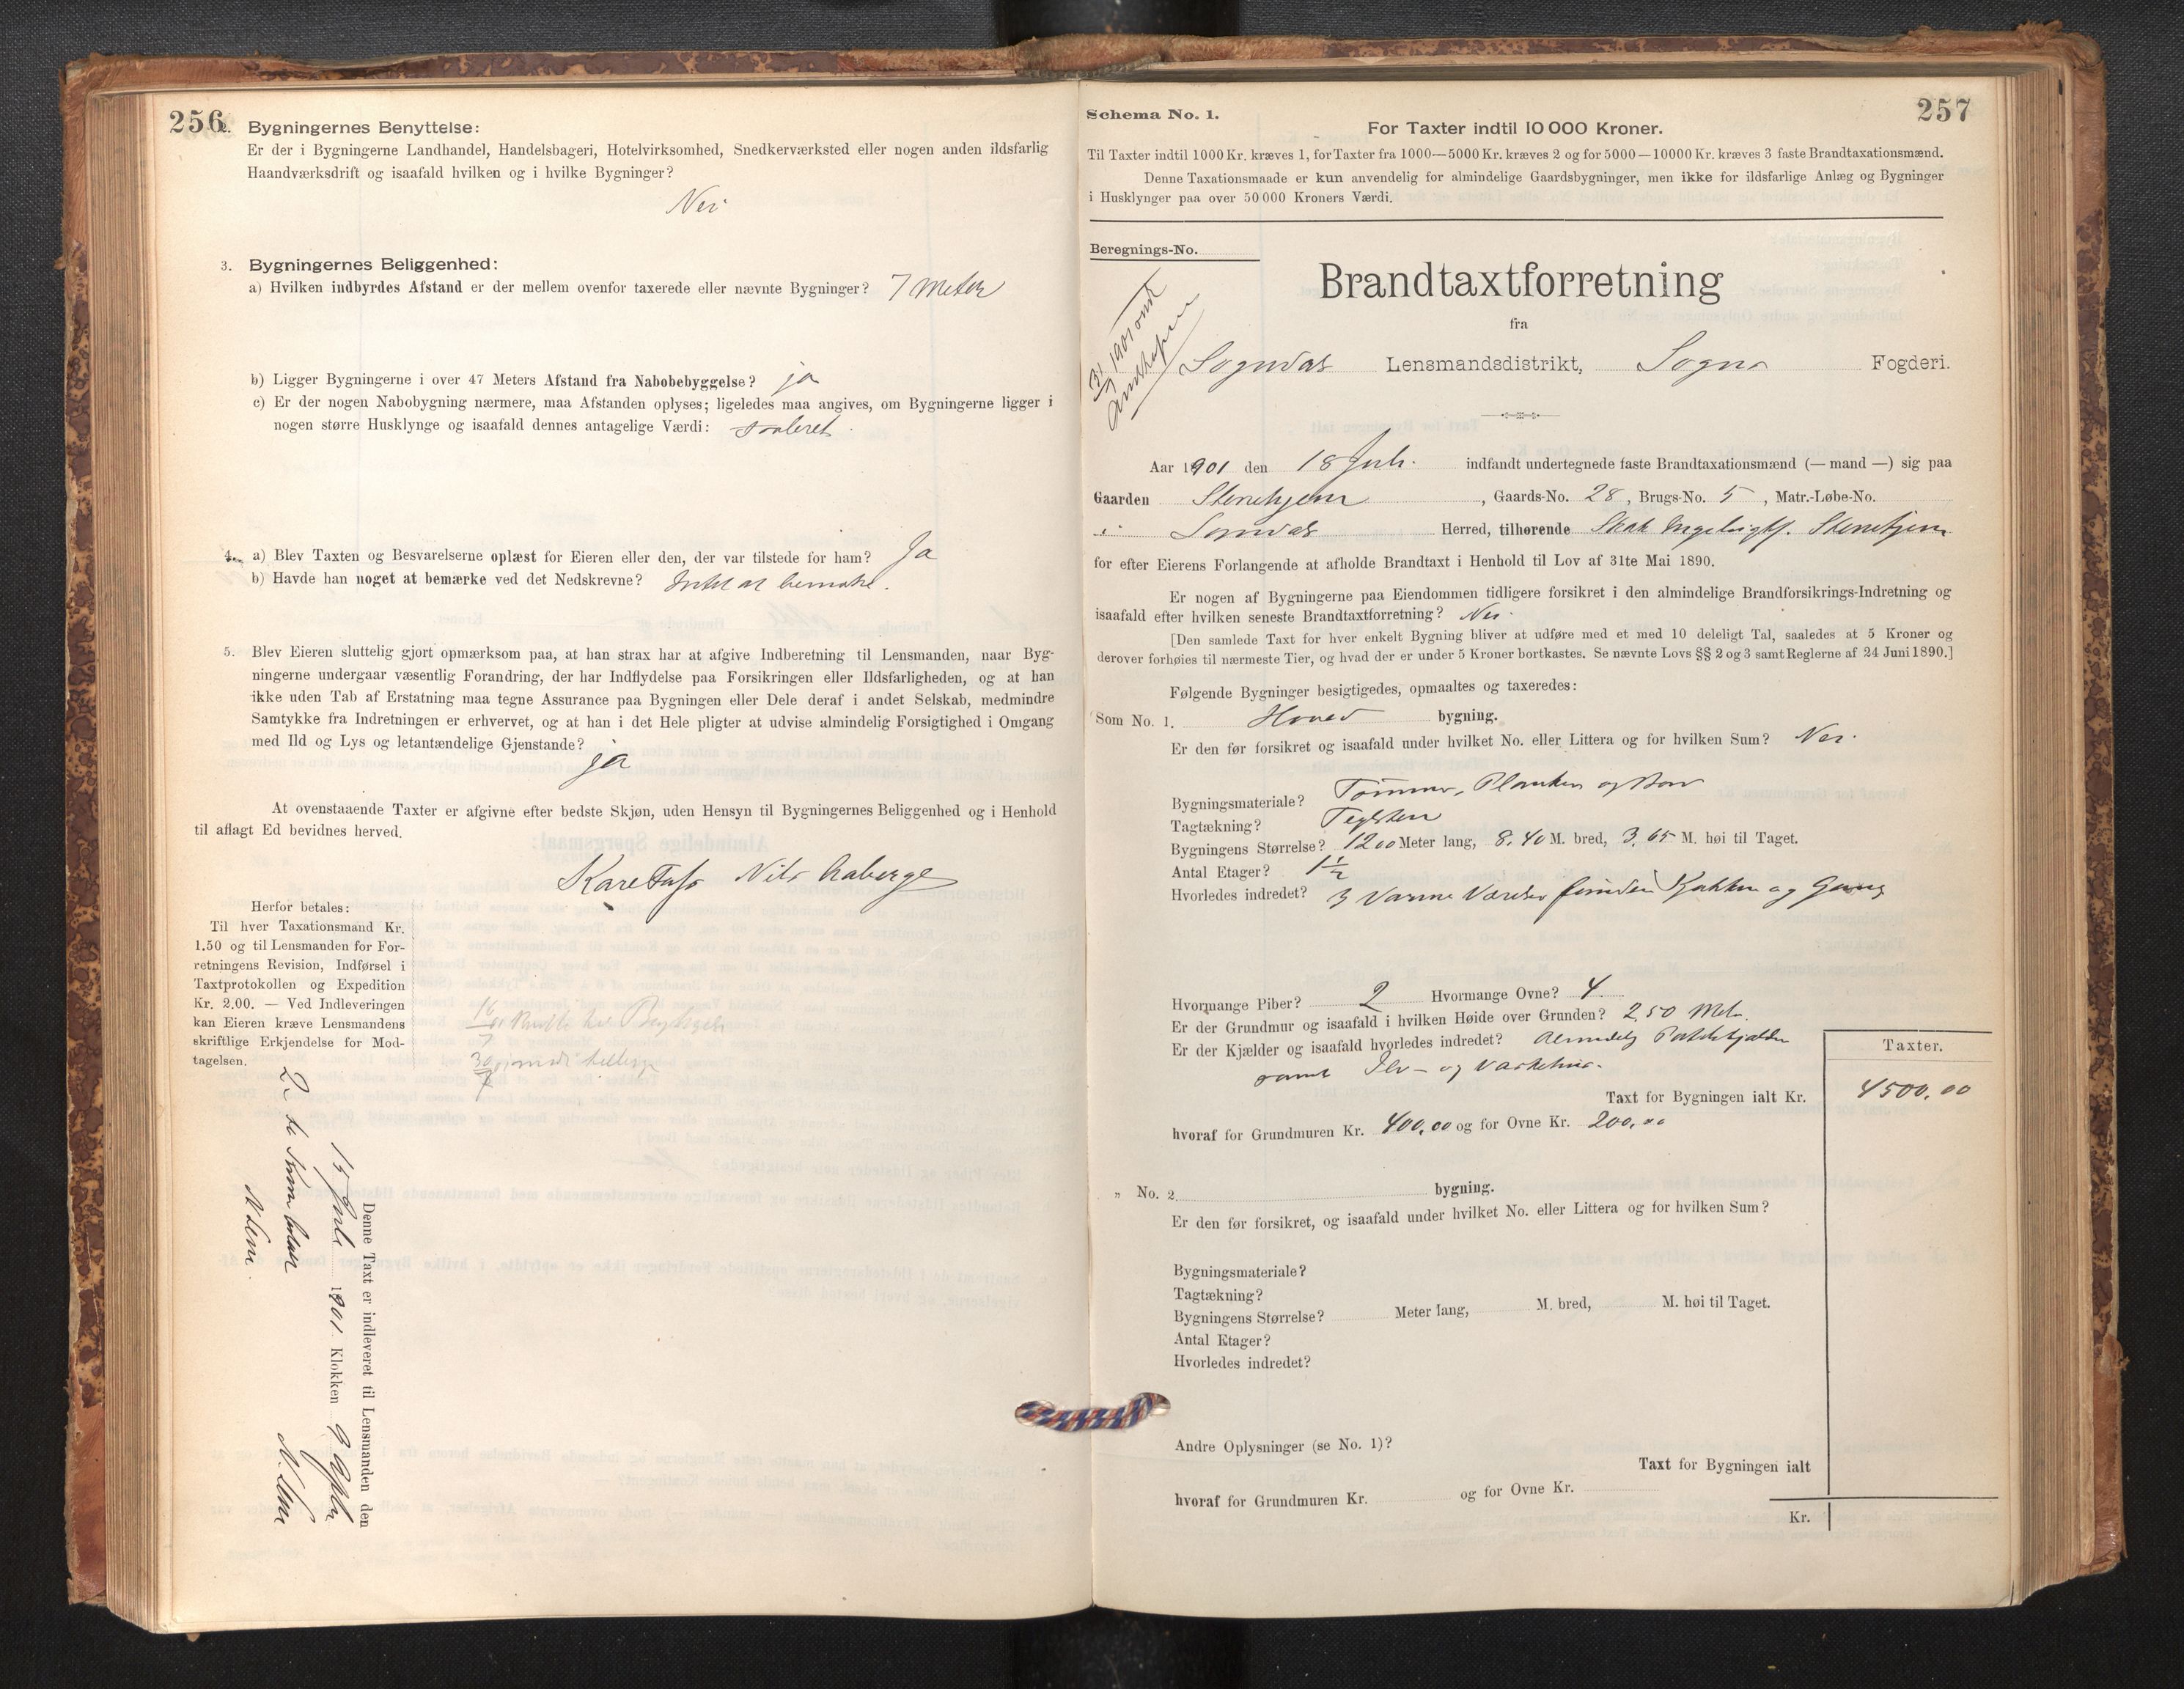 256
2. Bygningernes Benyttelse:
Er der i Bygningerne Landhandel, Handelsbageri, Hotelvirksomhed, Snedkerværksted eller nogen anden ildsfarlig
Haandværksdrift og isaafald hvilken og i hvilke Bygninger?
Nei
3. Bygningernes Beliggenhed:
a) Hvilken indbyrdes Afstand er der mellem ovenfor taxerede eller nævnte Bygninger? 7 Meter
b) Ligger Bygningerne i over 47 Meters Afstand fra Nabobebyggelse? ja
c) Er der nogen Nabobygning nærmere, maa Afstanden oplyses; ligeledes maa angives, om Bygningerne ligger i
nogen større Husklynge og isaafald dennes antagelige Værdi:
4. a) Blev Taxten og Besvarelserne oplæst for Eieren eller den, der var tilstede for ham? Ja
b) Havde han noget at bemærke ved det Nedskrevne? Intet at bemærke.
5. Blev Eieren sluttelig gjort opmærksom paa, at han strax har at afgive Indberetning til Lensmanden, naar Byg-
ningerne undergaar væsentlig Forandring, der har Indflydelse paa Forsikringen eller Ildsfarligheden, og at han
ikke uden Tab af Erstatning maa tegne Assurance paa Bygningen eller Dele deraf i andet Selskab, medmindre
Samtykke fra Indretningen er erhvervet, og at han i det Hele pligter at udvise almindelig Forsigtighed i Omgang
med Ild og Lys og letantændelige Gjenstande?
ja
At ovenstaaende Taxter er afgivne efter bedste Skjøn, uden Hensyn til Bygningernes Beliggenhed og i Henhold
til aflagt Ed bevidnes herved.
Nils Aaberge
Herfor betales:
Til hver Taxationsmand Kr.
1.50 og til Lensmanden for For-
retningens Revision, Indførsel i
Taxtprotokollen og Expedition
Kr. 2.00. — Ved Indleveringen
kan Eieren kræve Lensmandens
skriftlige Erkjendelse for Mod-
tagelsen.
Denne Taxt er indleveret til Lensmanden den
1901 Klokken 9
257
Schema No. 1.
For Taxter indtil 10 000 Kroner.
Til Taxter indtil 1000 Kr. kræves 1, for Taxter fra 1000—5000 Kr. kræves 2 og for 5000—10000 Kr. kræves 3 faste Brandtaxationsmænd.
Denne Taxationsmaade er kun anvendelig for almindelige Gaardsbygninger, men ikke for ildsfarlige Anlæg og Bygninger
i Husklynger paa over 50 000 Kroners Værdi.
Beregnings-No.
Brandtaxtforretning
fra
Sogndals Lensmandsdistrikt, Sogns Fogderi.
Aar 1901 den 18 Juli indfandt undertegnede faste Brandtaxationsmænd (— mand —) sig paa
Gaarden Stenehjem, Gaards-No. 28, Brugs-No. 5, Matr.-Løbe-No.
i Sogndals Herred, tilhørende Stenehjem
for efter Eierens Forlangende at afholde Brandtaxt i Henhold til Lov af 31te Mai 1890.
Er nogen af Bygningerne paa Eiendommen tidligere forsikret i den almindelige Brandforsikrings-Indretning og
isaafald efter hvilken seneste Brandtaxtforretning? Nei.
[Den samlede Taxt for hver enkelt Bygning bliver at udføre med et med 10 deleligt Tal, saaledes at 5 Kroner og
derover forhøies til nærmeste Tier, og hvad der er under 5 Kroner bortkastes. Se nævnte Lovs §§ 2 og 3 samt Reglerne af 24 Juni 1890.]
Følgende Bygninger besigtigedes, opmaaltes og taxeredes:
Som No. 1. Hoved bygning.
Er den før forsikret og isaafald under hvilket No. eller Littera og for hvilken Sum? Nei.
Bygningsmateriale? Tømmer, Planker og Bord
Tagtækning? Teglsten
Bygningens Størrelse? 12 00 Meter lang, 8,40 M. bred, 3,65 M. høi til Taget.
Antal Etager? 1½
Hvorledes indredet? 3 Varme Værelser foruden Kjøkken og Gang
Hvormange Piber? 2 Hvormange Ovne? 4.
Er der Grundmur og isaafald i hvilken Høide over Grunden? 2,50 Met.
Er der Kjælder og isaafald hvorledes indredet? Almindelig Potetkjælder
samt Ild- og Vaskehus.
Taxter.
Taxt for Bygningen ialt Kr. 4500,00
hvoraf for Grundmuren Kr. 400,00 og for Ovne Kr. 200,00
" No. 2 bygning.
Er den før forsikret, og isaafald under hvilket No. eller Littera og for hvilken Sum?
Bygningsmateriale?
Tagtækning?
Bygningens Størrelse? Meter lang, M. bred, M. høi til Taget.
Antal Etager?
Hvorledes indredet?
Andre Oplysninger (se No. 1)?
Taxt for Bygningen ialt
hvoraf for Grundmuren Kr. og for Ovne Kr.
Kr.